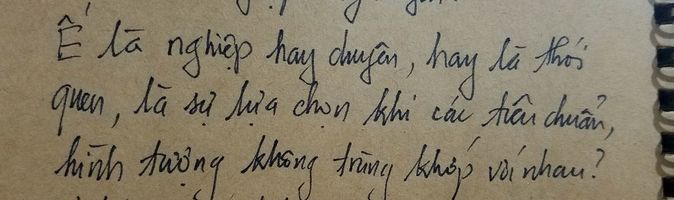 Ế là nghiệp hay duyên, hay là thói
quen, là sự lựa chọn khi các tiêu chuẩn,
hình tượng không trùng khớp với nhau?